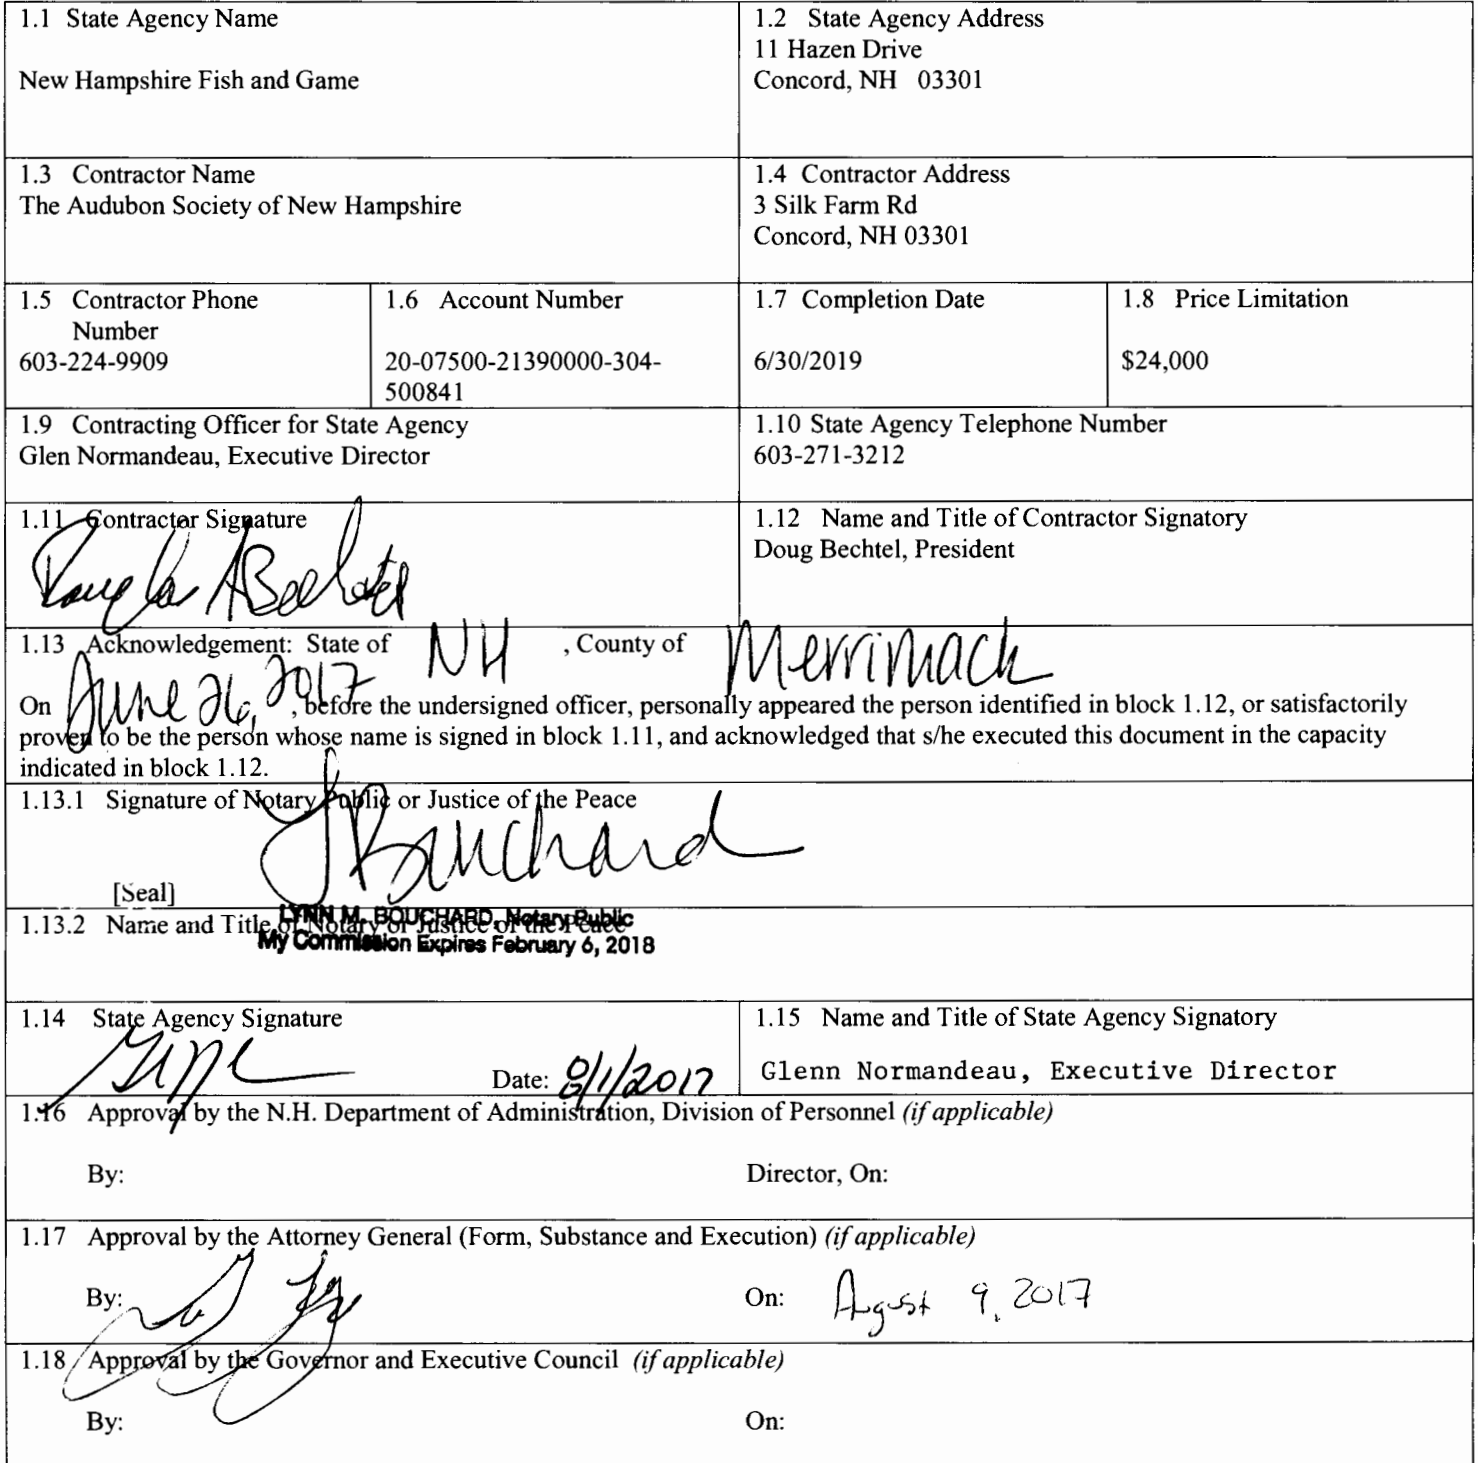 1.1 State Agency Name
New Hampshire Fish and Game
1.2 State Agency Address
11 Hazen Drive
Concord, NH 03301
1.3 Contractor Name
The Audubon Society of New Hampshire
1.4 Contractor Address
3 Silk Farm Rd
Concord, NH 03301
1.5 Contractor Phone
Number
603-224-9909
1.6 Account Number
20-07500-21390000-304-
500841
1.7 Completion Date
6/30/2019
1.8 Price Limitation
$24,000
1.9 Contracting Officer for State Agency
Glen Normandeau, Executive Director
1.10 State Agency Telephone Number
603-271-3212
1.11 Contractor Signature
Douglas A Bechtel
1.12 Name and Title of Contractor Signatory
Doug Bechtel, President
1.13 Acknowledgement: State of NH , County of Merrimack
On June 26, 2017 , before the undersigned officer, personally appeared the person identified in block 1.12, or satisfactorily
proven to be the person whose name is signed in block 1.11, and acknowledged that s/he executed this document in the capacity
indicated in block 1.12.
1.13.1 Signature of Notary Public or Justice of the Peace
Bouchard
[Seal]
1.13.2 Name and Title of Notary or Justice of the Peace
LYNN M. BOUCHARD, Notary Public
My Commission Expires February 6, 2018
1.14 State Agency Signature
Date: 8/1/2017
1.15 Name and Title of State Agency Signatory
Glenn Normandeau, Executive Director
1.16 Approval by the N.H. Department of Administration, Division of Personnel (if applicable)
By:
Director, On:
1.17 Approval by the Attorney General (Form, Substance and Execution) (if applicable)
By:
On: August 9, 2017
1.18 Approval by the Governor and Executive Council (if applicable)
By:
On: